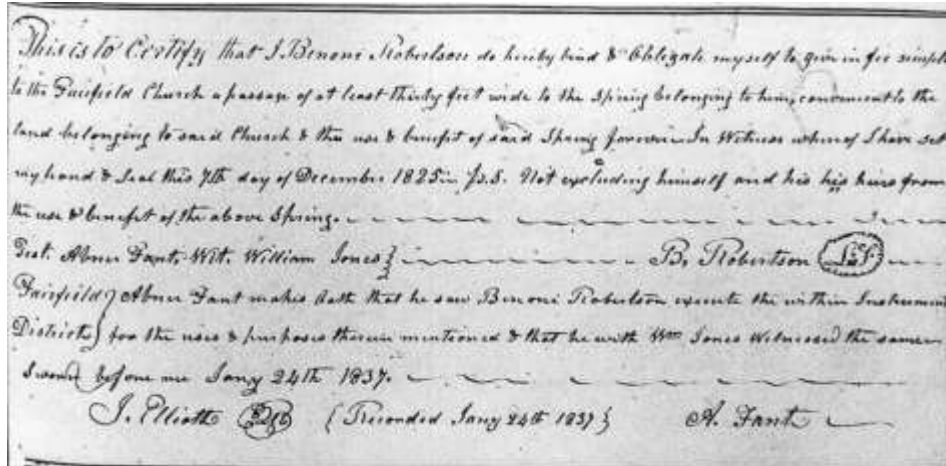 This is to Certify that I. Benoni Robertson do hereby bind & Obligate myself to give in fee simple
to the Fairfield Church a passage of at least thirty feet wide to the Spring belonging to him, convenient to the
land belonging to said Church & the use & benefit of said Spring forever. In Witness whereof I have set
my hand & Seal this 7th day of December 1825. p.s. Not excluding himself and his his heirs from
the use & benefit of the above Spring.
Test. Abner Fant, Wit. William Jones } B. Robertson
Fairfield } Abner Fant makes Oath that he saw Benoni Robertson execute the within Instrument
District } for the uses & purposes therein mentioned & that he with Wm Jones Witnessed the same
Sworn before me Jany 24th 1837.
J. Elliott { Recorded Jany 24th 1837 } A. Fant